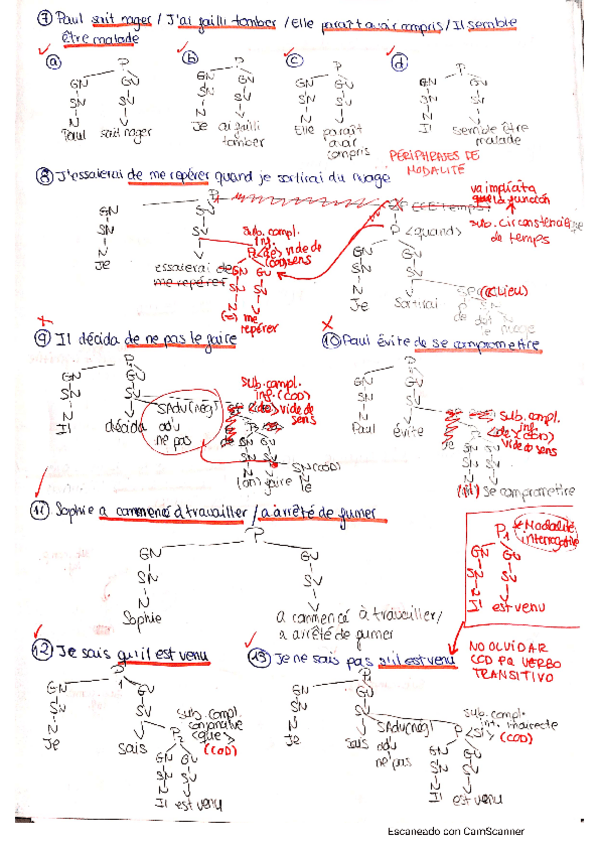 ⑦ Paul sait nager / J'ai failli tomber / Elle paraît avoir compris / Il semble
être malade
ⓐ P ⓑ P ⓒ P ⓓ P
GN GV GN GV GN GV GN GV
SN SV SN SV SN SV SN SV
N N N N
Paul sait nager Je ai failli Elle paraît Il semble être
tomber avoir malade
compris
PÉRIPHRASES DE
MODALITÉ
⑧ J'essaierai de me repérer quand je sortirai du nuage
va implícita
que la función
sub. circonstancielle
de temps
P <quand>
GN GV
SN SV
N
Je
essaierai de
me repérer
sub. compl.
inf.
P <de> vide de
(COD) sens
GN GV
SN SV
N
me
repérer
GN GV
SN SV
N
Je Sortirai
(CC Lieu)
P
de
nuage
⑨ Il décida de ne pas le faire
⑩ Paul évite de se comprometire
P
GN GV
SN SV
N
Il décida
SAdv(nég)
adv
ne pas
sub. compl.
inf. (COD)
<de> vide de
sens
(on) faire
SN (COD)
le
P
GN GV
SN SV
N
Paul évite
sub. compl.
inf.
<de> (COD)
vide de
sens
(il) se comprometire
⑪ Sophie a commencé à travailler / a arrêté de fumer
P
GN GV
SN SV
N
Sophie a commencé à travailler /
a arrêté de fumer
P1 *Modalité
interrogative
GN GV
SN SV
N
Il est venu
⑫ Je sais qu'il est venu
⑬ Je ne sais pas s'il est venu
NO OLVIDAR
COD PQ VERBO
TRANSITIVO
P
1
GN GV
SN SV
N
Je sais
sub. compl.
conjonctive
<que>
(COD)
P2
GN GV
SN SV
N
Il est venu
P
GN GV
SN SV
N
Je sais
SAdv(nég)
adv
ne pas
sub. compl.
int. indirecte
P <si> (COD)
GN GV
SN SV
N
Il est venu
Escaneado con CamScanner